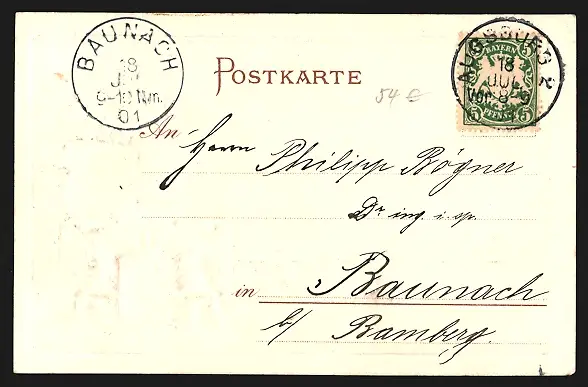 BAUNACH
18
JUL
9-10 Nm.
01
POSTKARTE
AUGSBURG 2
18
JUL
Vor. 8-9
BAYERN
5 PFENNIG 5
54 €
An
Herrn Philipp Bögner
in Baunach
b/ Bamberg.